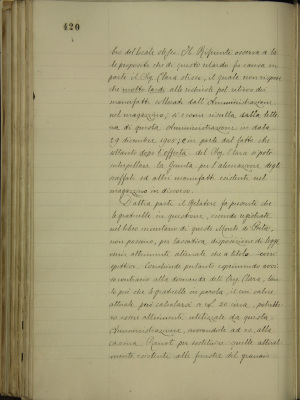 420
bro del locale stesso. Il Riferente osserva a ta-
le proposito che di questo ritardo fu causa in
parte il Sig. Clara stesso, il quale non rispose
che molto tardi alle richieste pel ritiro dei
manufatti collocati dall'Amministrazione
nel magazzino, e come risulta dalla lette-
ra di questa Amministrazione in data
29 dicembre 1905; e in parte del fatto che
soltanto dopo l'offerta del Sig. Clara si potè
interpellare la Giunta per l'alienazione degli
scaffali ed altri manufatti esistenti nel
magazzino in discorso.
D'altra parte il Relatore fa presente che
le gratelle in questione, essendo registrate
nel libro inventario di questo Monte di Pietà,
non possono, per tassativa disposizione di legge
venir altrimenti alienate che a titolo
. Concludendo pertanto esprimendo avviso
contrario alla domanda del Sig. Clara, tan-
to più che le gratelle in parola, il cui valore
attuale può calcolarsi a L. 20 circa, potreb-
bero essere altrimenti utilizzate da questa
Amministrazione, servendole ad es. alla
caserma per sostituire quelle attual-
mente esistenti alle finestre del granaio